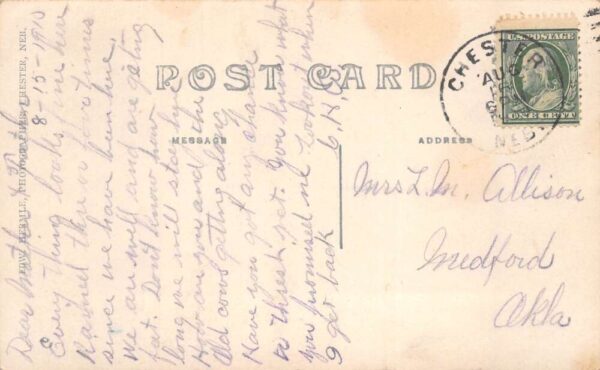 8-15-1910
Dear Brother &
Everything looks fine here
Rained three or four times
since we have been here.
We are well and are getting
fat. Don't know how
long we will stay here
How are you and the
Old cows getting along
Have you got any chance
to thresh yet. You know what
you promised me Lookout when
I get back C.H.S.
EDW. HERMLE, PHOTOGRAPHER, CHESTER, NEB.
POST CARD
MESSAGE
ADDRESS
Mrs L. M. Allison
Medford
Okla
CHESTER
AUG
NEB.
U.S. POSTAGE
ONE CENT